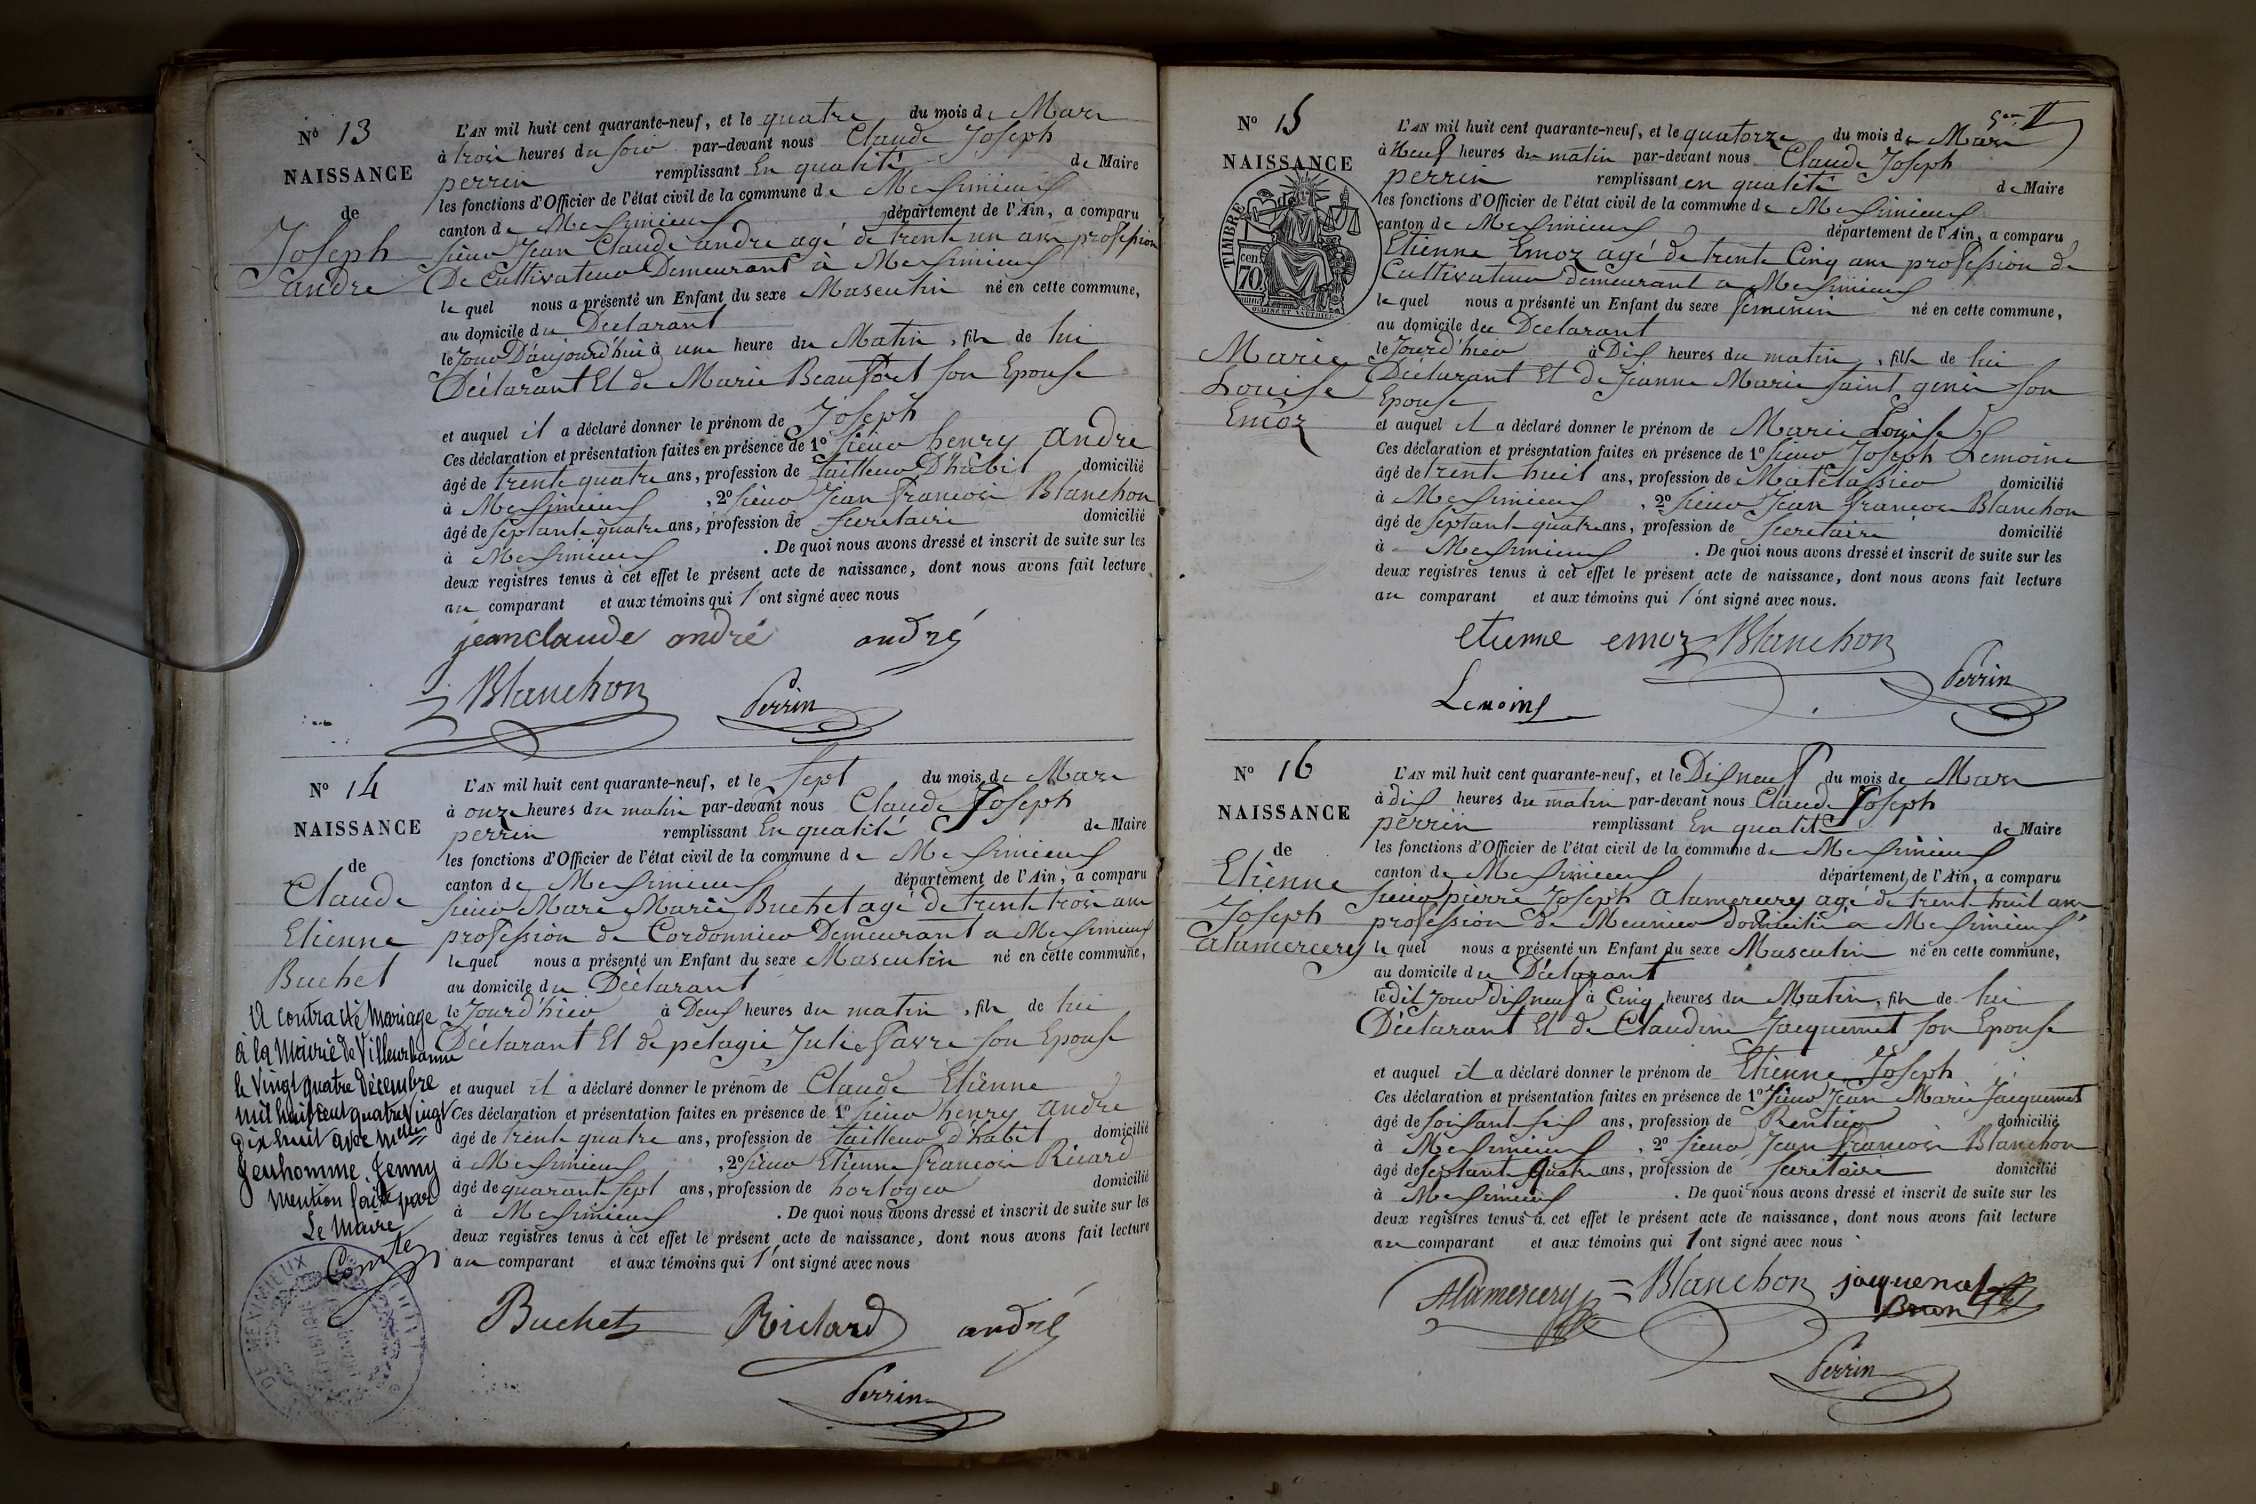 N° 13
NAISSANCE
de
Joseph
andre
L'AN mil huit cent quarante-neuf, et le quatre du mois de Mars
à trois heures du soir par-devant nous Claude Joseph
perrin remplissant En qualité de Maire
les fonctions d'Officier de l'état civil de la commune de Meximieux
canton de Meximieux département de l'Ain, a comparu
sieur Jean Claude andre agé de trente un ans profession
De Cultivateur Demeurant à Meximieux
le quel nous a présenté un Enfant du sexe Masculin né en cette commune,
au domicile du Déclarant
le Jour D'aujourd'hui à une heure du Matin, fils de lui
Déclarant Et de Marie Beaufort son Epouse
et auquel il a déclaré donner le prénom de Joseph
Ces déclaration et présentation faites en présence de 1° sieur henry andre
âgé de trente quatre ans, profession de tailleur D'habit domicilié
à Meximieux, 2° sieur Jean francois Blanchon
âgé de septante quatre ans, profession de secretaire domicilié
à Meximieux. De quoi nous avons dressé et inscrit de suite sur les
deux registres tenus à cet effet le présent acte de naissance, dont nous avons fait lecture
au comparant et aux témoins qui l'ont signé avec nous
jeanclaude andré andré
Blanchon Perrin
N° 14
NAISSANCE
de
Claude
Etienne
Buchet
A contracté mariage
à la Mairie de Villeurbanne
le Vingt quatre Décembre
mil huit cent quatre vingt
dix huit avec Melle
Jeuhomme Jenny
Mention faite par
Le Maire
DE MEXIMIEUX
L'AN mil huit cent quarante-neuf, et le sept du mois de Mars
à onze heures du matin par-devant nous Claude Joseph
perrin remplissant En qualité de Maire
les fonctions d'Officier de l'état civil de la commune de Meximieux
canton de Meximieux département de l'Ain, a comparu
sieur Marc Marie Buchet agé de trente trois ans
profession de Cordonnier Demeurant a Meximieux
le quel nous a présenté un Enfant du sexe Masculin né en cette commune,
au domicile du Déclarant
le Jourd'hier à Deux heures du matin, fils de lui
Déclarant Et de pelagie Julie favre son Epouse
et auquel il a déclaré donner le prénom de Claude Etienne
Ces déclaration et présentation faites en présence de 1° sieur henry andre
âgé de trente quatre ans, profession de tailleur d'habit domicilié
à Meximieux, 2° sieur Etienne francois Ricard
âgé de quarante sept ans, profession de horloger domicilié
à Meximieux. De quoi nous avons dressé et inscrit de suite sur les
deux registres tenus à cet effet le présent acte de naissance, dont nous avons fait lecture
au comparant et aux témoins qui l'ont signé avec nous
Buchet Ricard andré
Perrin
N° 15
NAISSANCE
TIMBRE
cen
70
Marie
Louise
Emoz
L'AN mil huit cent quarante-neuf, et le quatorze du mois de Mars
à Neuf heures du matin par-devant nous Claude Joseph
perrin remplissant en qualité de Maire
les fonctions d'Officier de l'état civil de la commune de Meximieux
canton de Meximieux département de l'Ain, a comparu
Etienne Emoz agé de trente Cinq ans profession de
Cultivateur demeurant a Meximieux
le quel nous a présenté un Enfant du sexe feminin né en cette commune,
au domicile du Declarant
le Jourd'hier à Dix heures du matin, fille de lui
Déclarant Et de Jeanne Marie saint genis son
Epouse
et auquel il a déclaré donner le prénom de Marie Louise
Ces déclaration et présentation faites en présence de 1° sieur Joseph Lemoine
âgé de trente huit ans, profession de Matelassier domicilié
à Meximieux, 2° sieur Jean francois Blanchon
âgé de septante quatre ans, profession de secretaire domicilié
à Meximieux. De quoi nous avons dressé et inscrit de suite sur les
deux registres tenus à cet effet le présent acte de naissance, dont nous avons fait lecture
au comparant et aux témoins qui l'ont signé avec nous.
etienne emoz Blanchon
Lemoine Perrin
N° 16
NAISSANCE
de
Etienne
Joseph
alamercery
L'AN mil huit cent quarante-neuf, et le Dixneuf du mois de Mars
à dix heures du matin par-devant nous Claude Joseph
perrin remplissant En qualité de Maire
les fonctions d'Officier de l'état civil de la commune de Meximieux
canton de Meximieux département de l'Ain, a comparu
sieur pierre Joseph alamercery agé de trente huit ans
profession de Meunier domicilié a Meximieux
le quel nous a présenté un Enfant du sexe Masculin né en cette commune,
au domicile du Déclarant
le dit Jour dixneuf à Cinq heures du Matin, fils de lui
Déclarant Et de Claudine Jacquemet son Epouse
et auquel il a déclaré donner le prénom de Etienne Joseph
Ces déclaration et présentation faites en présence de 1° sieur Jean Marie Jacquemet
âgé de soixante six ans, profession de Rentier domicilié
à Meximieux, 2° sieur Jean francois Blanchon
âgé de septante quatre ans, profession de secretaire domicilié
à Meximieux. De quoi nous avons dressé et inscrit de suite sur les
deux registres tenus à cet effet le présent acte de naissance, dont nous avons fait lecture
au comparant et aux témoins qui l'ont signé avec nous
Alamercery Blanchon
Perrin